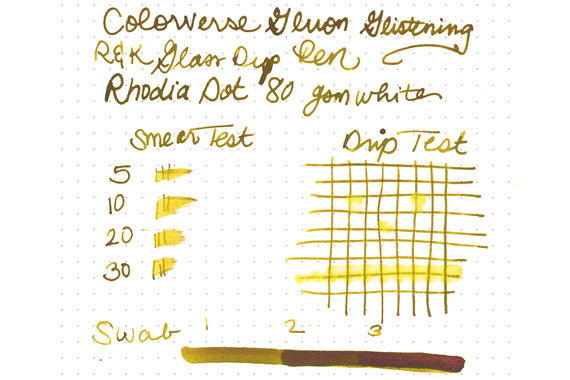 Colorverse Gluon Glistening
R&K Glass Dip Pen
Rhodia Dot 80 gsm white
Smear Test
Drip Test
5
10
20
30
Swab 1 2 3